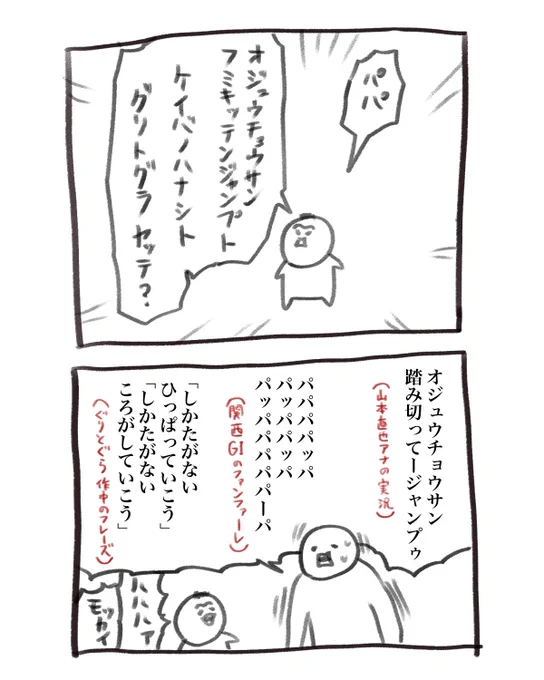 パパ
オジュウチョウサン
フミキッテンジャンプト
ケイバノハナシト
グリトグラ ヤッテ?
オジュウチョウサン
踏み切ってージャンプゥ
(山本直也アナの実況)
パパパパッパ
パッパパッパ
パッパパパパパーパ
(関西GIのファンファーレ)
「しかたがない
ひっぱっていこう」
「しかたがない
ころがしていこう」
(ぐりとぐら 作中のフレーズ)
ハハハァ
モッカイ